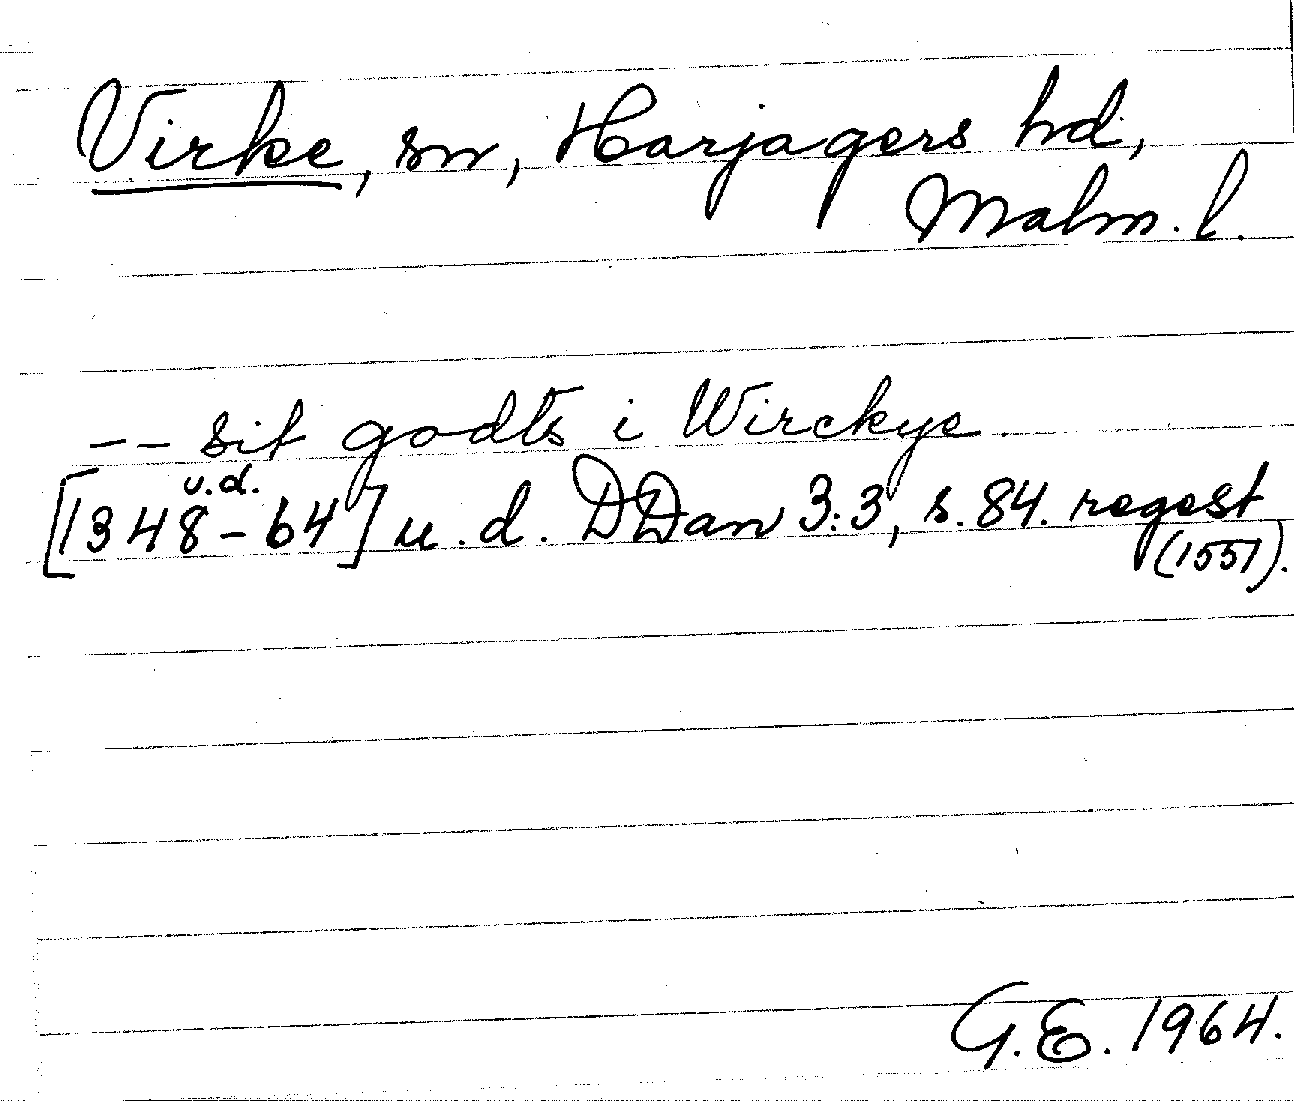 Virke, sn, Harjagers hd,
Malm. l.
-- sit godts i Wirckye
u.d.
[1348-64] u.d. DDan 3:3, s. 84. regest
(1551).
G.E. 1964.